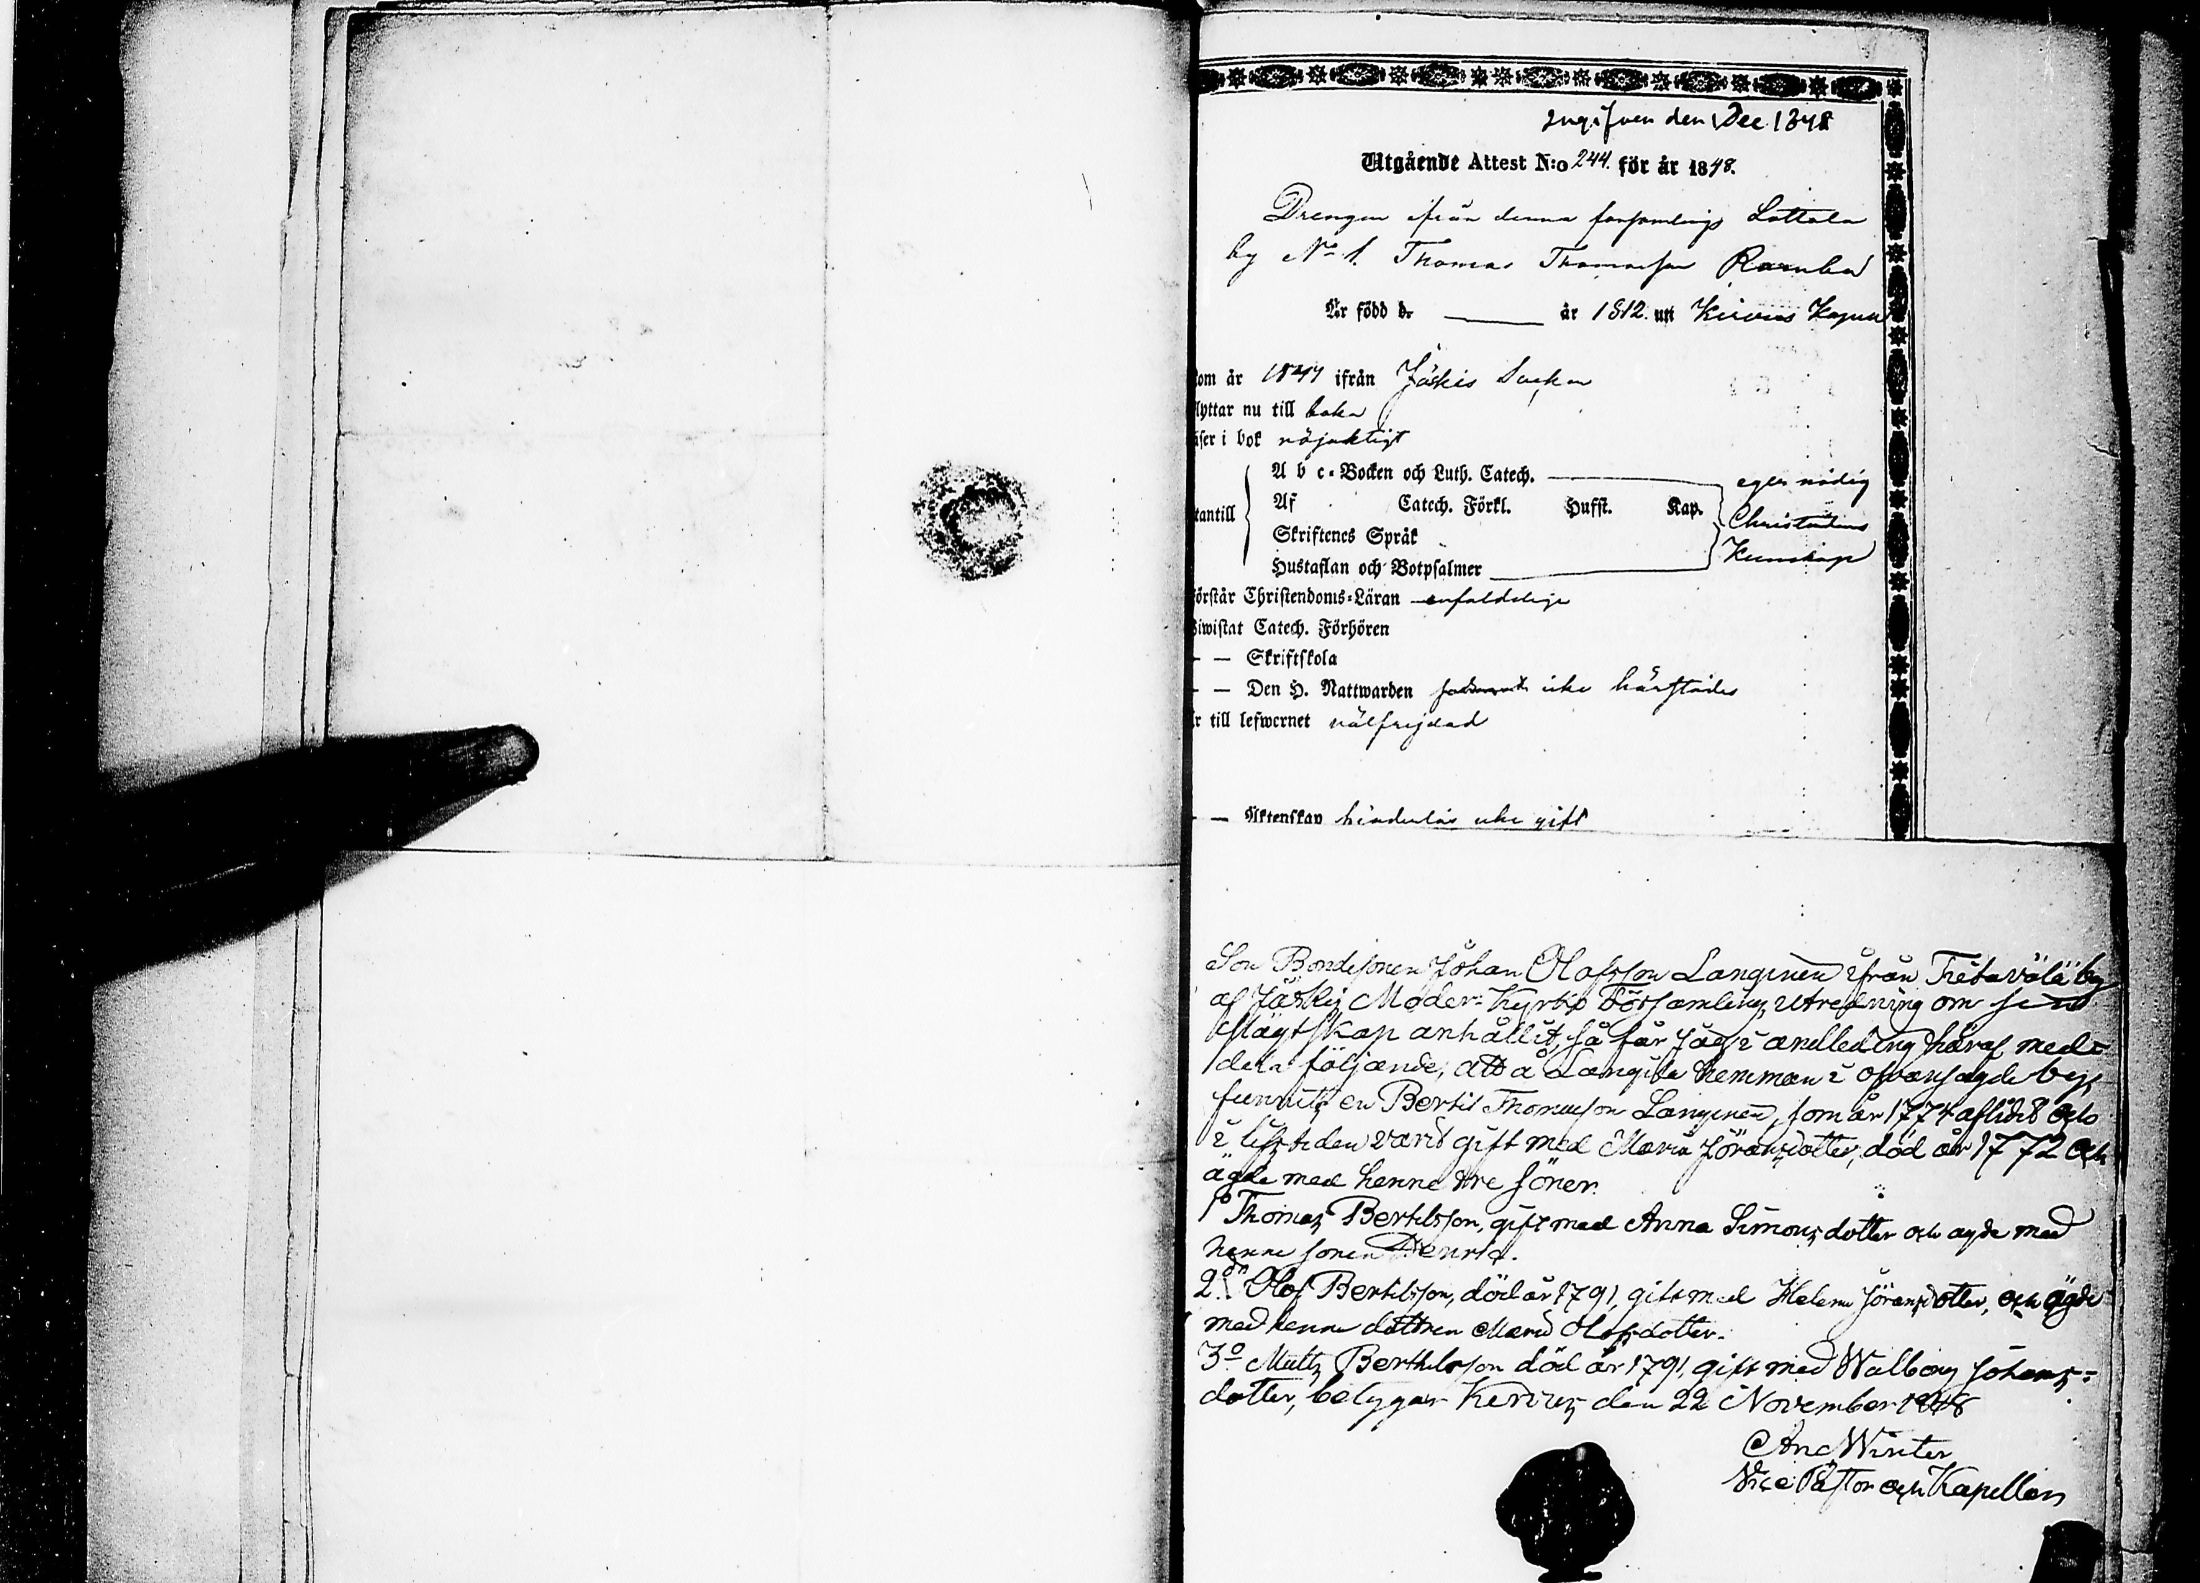 Ingifven den Dec 1848
Utgående Attest N:o 244. för år 1848.
Drengen ifrån denna församlings Lottola
by No 1. Thomas Thomasson
Är född d. år 1812. uti Kirvus Kapell
om år 1847 ifrån Jäskis Sockn
lyttar nu till baka
äser i bok nöjaktigt
A b c-Bocken och Luth. Catech.
eger nödig
tantill
Af Catech. Förkl. Hufst. Kap.
Christendoms
Skriftenes Språk
Kunskap
Hustaflan och Botpsalmer
örstår Christendoms-Läran enfaldeligen
Biwistat Catech. Förhören
- — Skriftskola
- — Den H. Nattwarden icke härstädes
r till lefwernet välfrejdad
- — Äktenskap hinderlös icke gift
Son Bondesonen Johan Olofsson Langinen ifrån Tietävälä by
af Jäskis Moder-Kyrko Församling, utredning om sin
Slägtskap anhållit, så får jag i anledning häraf med-
dela följande, att å Langila hemman i ofvansagde by,
funnits en Bertil Thomasson Langinen, som år 1774 aflidit och
i lifstiden varit gift med Maria Jöransdotter, död år 1772 och
ägde med henne tre söner.
1o Thomas Bertilsson, gift med Anna Simonsdotter och ägde med
henne sonen Henric.
2o Olof Bertilsson, död år 1791, gift med Helena Jöransdotter, och ägde
med henne dottren Maria Olofsdotter.
3o Matts Berthilsson död år 1791, gift med Walborg Johans-
dotter, betygar Kirvus den 22 November 1848
And Winter
Vice Pastor och Kapellan